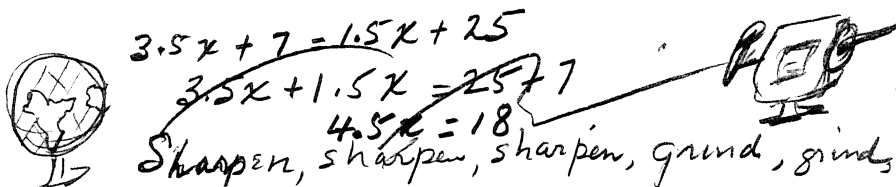 3.5x + 7 = 1.5x + 25
3.5x + 1.5x = 25 + 7
4.5x = 18
Sharpen, sharpen, sharpen, grind, grind,